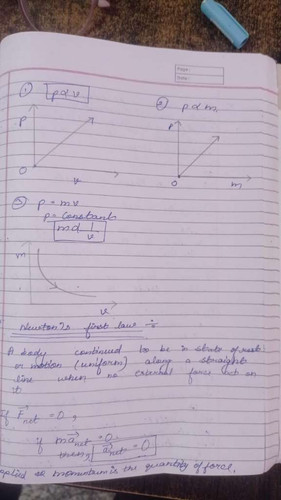 Page:
Date:
① p ∝ v
② p ∝ m
p
O
v
p
O
m
③ p = mv
p = constant
m ∝ 1/v
m
v
Newton's first law :-
A body continued to be in state of rest
or motion (uniform) along a straight
line when no external force act on
it
if F⃗net = 0,
if ma⃗net = 0.
then, a⃗net = 0
applied as momentum is the quantity of force.